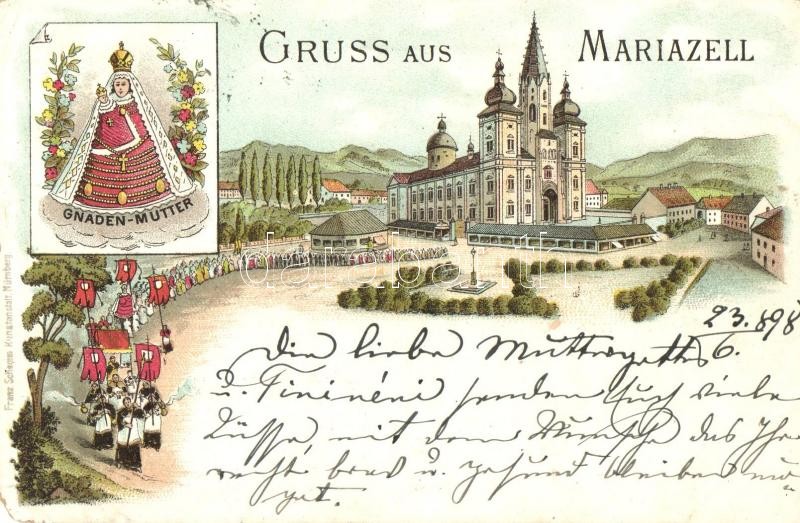 GRUSS AUS MARIAZELL
GNADEN-MUTTER
Franz Scheiner Kunstanstalt Nürnberg
darabanth
23. 898
6.
Die liebe Muttergottes
u. Fininéni senden Euch viele
Küsse, mit dem Wunsche das Ihr
recht brav u. gesund bleiben mö
get.